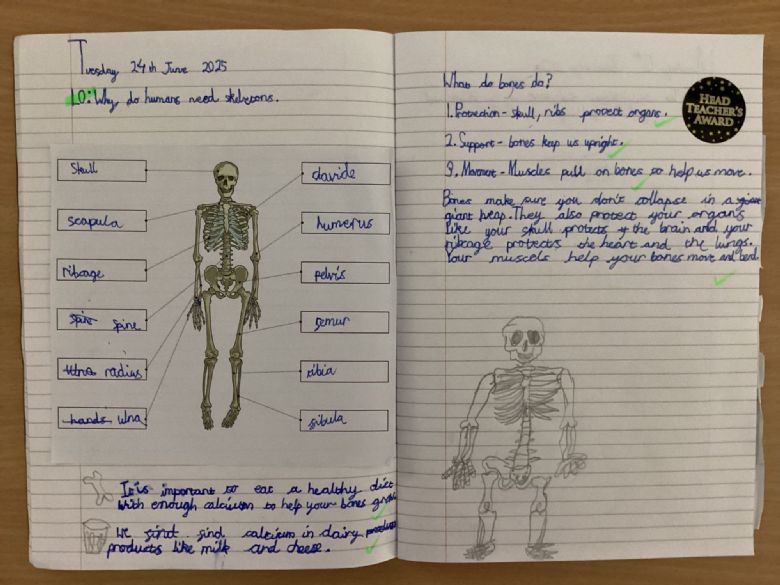 Tuesday 24th June 2025
LO: Why do humans need skeletons.
Skull
scapula
ribcage
spine
radius
hands ulna
clavide
humerus
pelvis
femur
tibia
fibula
It is important to eat a healthy diet
with enough calcium to help your bones
We find find calcium in dairy products
products like milk and cheese.
What do bones do?
1. Protection - skull, ribs protect organs.
2. Support - bones keep us upright.
3. Movment - Muscles pull on bones to help us move.
Bones make sure you don't collapse in a
giant heap. They also protect your organs
like your skull protects the brain and your
ribcage protects the heart and the lungs.
Your muscels help your bones move and bend.
HEAD
TEACHER'S
AWARD